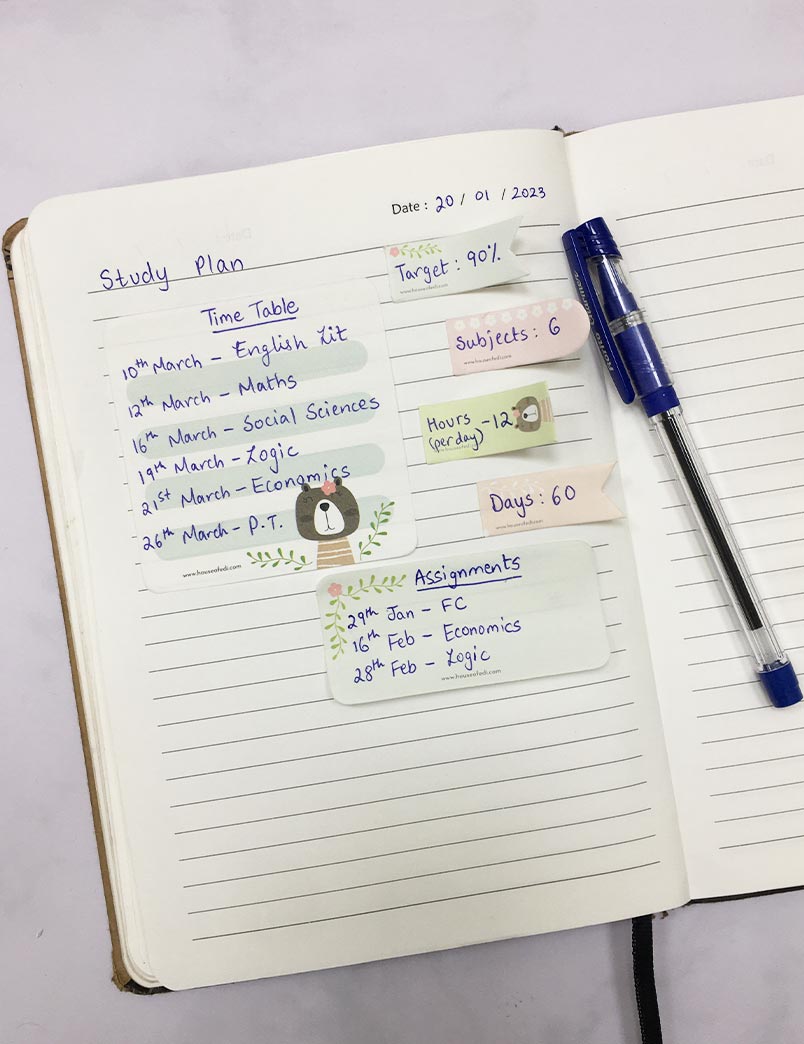 Date : 20 / 01 / 2023
Study Plan
Target : 90%
www.houseofedi.com
Time Table
10th March - English Lit
12th March - Maths
16th March - Social Sciences
19th March - Logic
21st March - Economics
26th March - P.T.
www.houseofedi.com
Subjects : 6
www.houseofedi.com
Hours
(per day) - 12
www.houseofedi.com
Days : 60
www.houseofedi.com
Assignments
29th Jan - FC
16th Feb - Economics
28th Feb - Logic
www.houseofedi.com